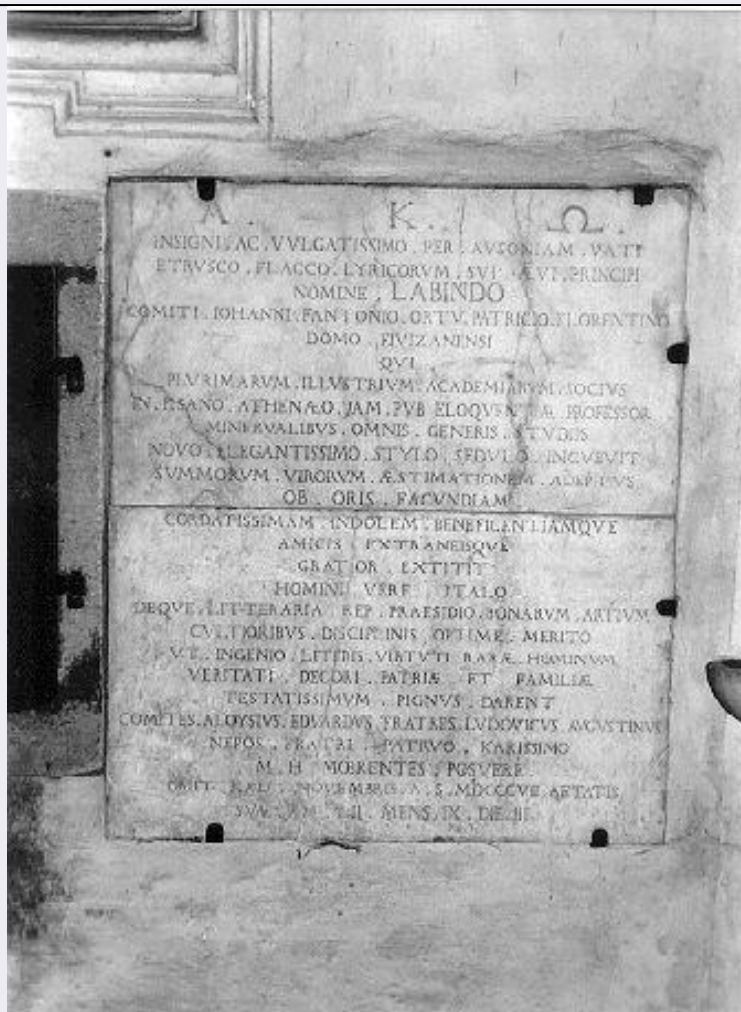 Α . K . Ω
INSIGNI . AC . VVLGATISSIMO . PER . AVSONIAM . VATI
ETRVSCO . FLACCO . LYRICORVM . SVI . ÆVI . PRINCIPI
NOMINE . LABINDO
COMITI . IOHANNI . FANTONIO . ORTV . PATRICIO . FLORENTINO
DOMO . FIVIZANENSI
QVI
PLVRIMARVM . ILLVSTRIVM . ACADEMIARVM . SOCIVS
IN . PISANO . ATHENÆO . JAM . PVB . ELOQVENTIÆ . PROFESSOR
MINERVALIBVS . OMNIS . GENERIS . STVDIIS
NOVO . ELEGANTISSIMO . STYLO . SEDVLO . INCVBVIT
SVMMORVM . VIRORVM . ÆSTIMATIONEM . ADEPTVS
OB . ORIS . FACVNDIAM
CORDATISSIMAM . INDOLEM . BENEFICENTIAMQVE
AMICIS . EXTRANEISQVE
GRATIOR . EXTITIT
HOMINI . VERE . ITALO
DEQVE . LITTERARIA . REP . PRAESIDIO . BONARVM . ARTIVM
CVLTIORIBVS . DISCIPLINIS . OPTIME . MERITO
VT . INGENIO . LITERIS . VIRTVTI . RARÆ . HOMINVM
VERITATI . DECORI . PATRIÆ . ET . FAMILIÆ
TESTATISSIMVM . PIGNVS . DARENT
COMITES . ALOYSIVS . EDVARDVS . FRATRES . LVDOVICVS . AVGVSTINVS
NEPOS . FRATRI . PATRVO . KARISSIMO
M . H . MOERENTES . POSVERE
OBIIT . KAL . NOVEMBRIS . A . S . MDCCCVII . AETATIS
SVÆ . MENS . IX . DIE . III